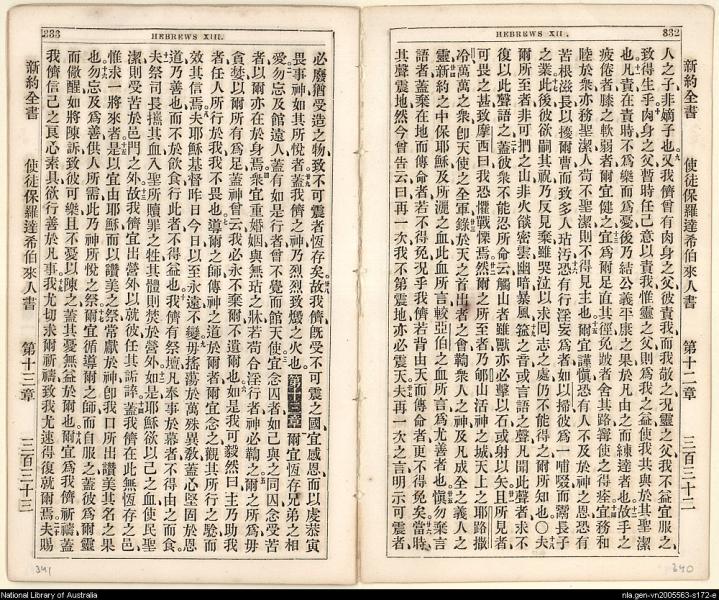 HEBREWS XII.
332
新約全書 使徒保羅達希伯來人書 第十二章 三百三十二
人之子、非嫡子也、又我儕曾有肉身之父、彼責我而我敬之、况靈之父、我不益宜服之、
致得生乎、肉身之父、暫時任己意以責我、惟靈之父、則為我之益、使我共與於其聖潔
也、凡責在責時、不為樂而為憂、後乃結公義平康之果、於凡由之而練達者也、故手之
疲倦者、膝之軟弱者、爾宜健之、宜為爾足直其徑、免跛者舍其路、寧使之得痊、宜務和
睦於衆、亦務聖潔、人苟不聖潔、則不得見主也、爾宜謹慎、恐有人不及於神之恩、恐有
苦根滋長以擾爾曹、而致多人玷污、恐有行淫妄為者、如以掃彼為一哺啜而鬻長子
之業、此後彼欲嗣其祝、乃反見棄、雖哭泣以求回志之處、仍不能得之、爾所知也、○夫
爾所至者、非可捫之山、非火燄密雲幽暗暴風、鎰之音、或言語之聲、凡聞此聲者、求不
復以此聲語之、蓋彼衆不能忍所命云、觸山者雖獸亦必擊以石、或射以矢、且所見者、
可畏之甚、致摩西曰、我恐懼戰慄焉、然爾之所至者、乃郇山、活神之城、天上之耶路撒
冷、萬萬之衆、卽天使之全軍、錄於天之首出者之會、鞫衆人之神、及凡成全之義人之
靈、新約之中保耶穌、及所灑之血、此血所言、較亞伯之血所言、為尤善者也、愼勿棄言
語者、蓋棄在地而傳命者、若不得免、况乎我儕若背由天而傳命者、更不得免矣、當時
其聲震地、然今曾告云、曰、再一次我不第震地、亦必震天、夫再一次之言、明示可震者、
340
HEBREWS XIII.
333
必廢、猶受造之物、致不可震者恆存矣、故我儕旣受不可震之國、宜感恩而以虔恭寅
畏事神、如其所悅者、蓋我儕之神、乃烈烈致燬之火也、 第十三章 爾宜恆存兄弟之相
愛、勿忘及館遠人、蓋有如是行者、曾不覺而館天使、宜念囚者、如己與之同囚、念受苦
者、以爾亦在於身焉、衆宜重婚姻與無玷之牀、若苟合淫行者、神必鞫之、爾之所為、毋
貪婪、以爾所有為足、蓋神曾云、我必永不棄爾、不遺爾也、如是我可毅然曰、主乃助我
者、任人所行於我、我不畏也、導爾之師、傳神之道於爾者、爾宜念之、觀其所行之驗而
效其信焉、夫耶穌基督、昨日今日以至永遠不變、毋搖蕩於萬殊異敎、蓋心堅固於恩
道乃善也、而不於飲食、行此者不得益也、我儕有祭壇、凡奉事於幕者、不得由之而食、
夫祭司長攜其血入聖所贖罪之牲、其體則焚於營外、如是耶穌欲以己之血使民聖
潔、則受苦於邑門之外、故我儕宜出營外以就彼、任其詬誶、蓋我儕在此無恆存之邑、
惟求一將來者、是以宜由耶穌、而以讚美之祭、常獻於神、卽我口所出、讚美其名之果
也、勿忘及為善供人所需、此乃神所悅之祭、爾宜循導爾之師、而自服之、蓋彼為爾靈
而儆醒、如將陳訴、致彼可樂且不憂以陳之、蓋其憂無益於爾也、爾宜為我儕祈禱、蓋
我儕信己之良心、素具欲行善於凡事、我尤切求爾祈禱、致我尤速得復就爾焉、夫賜
新約全書 使徒保羅達希伯來人書 第十三章 三百三十三
341
National Library of Australia
nla.gen-vn2005563-s172-e